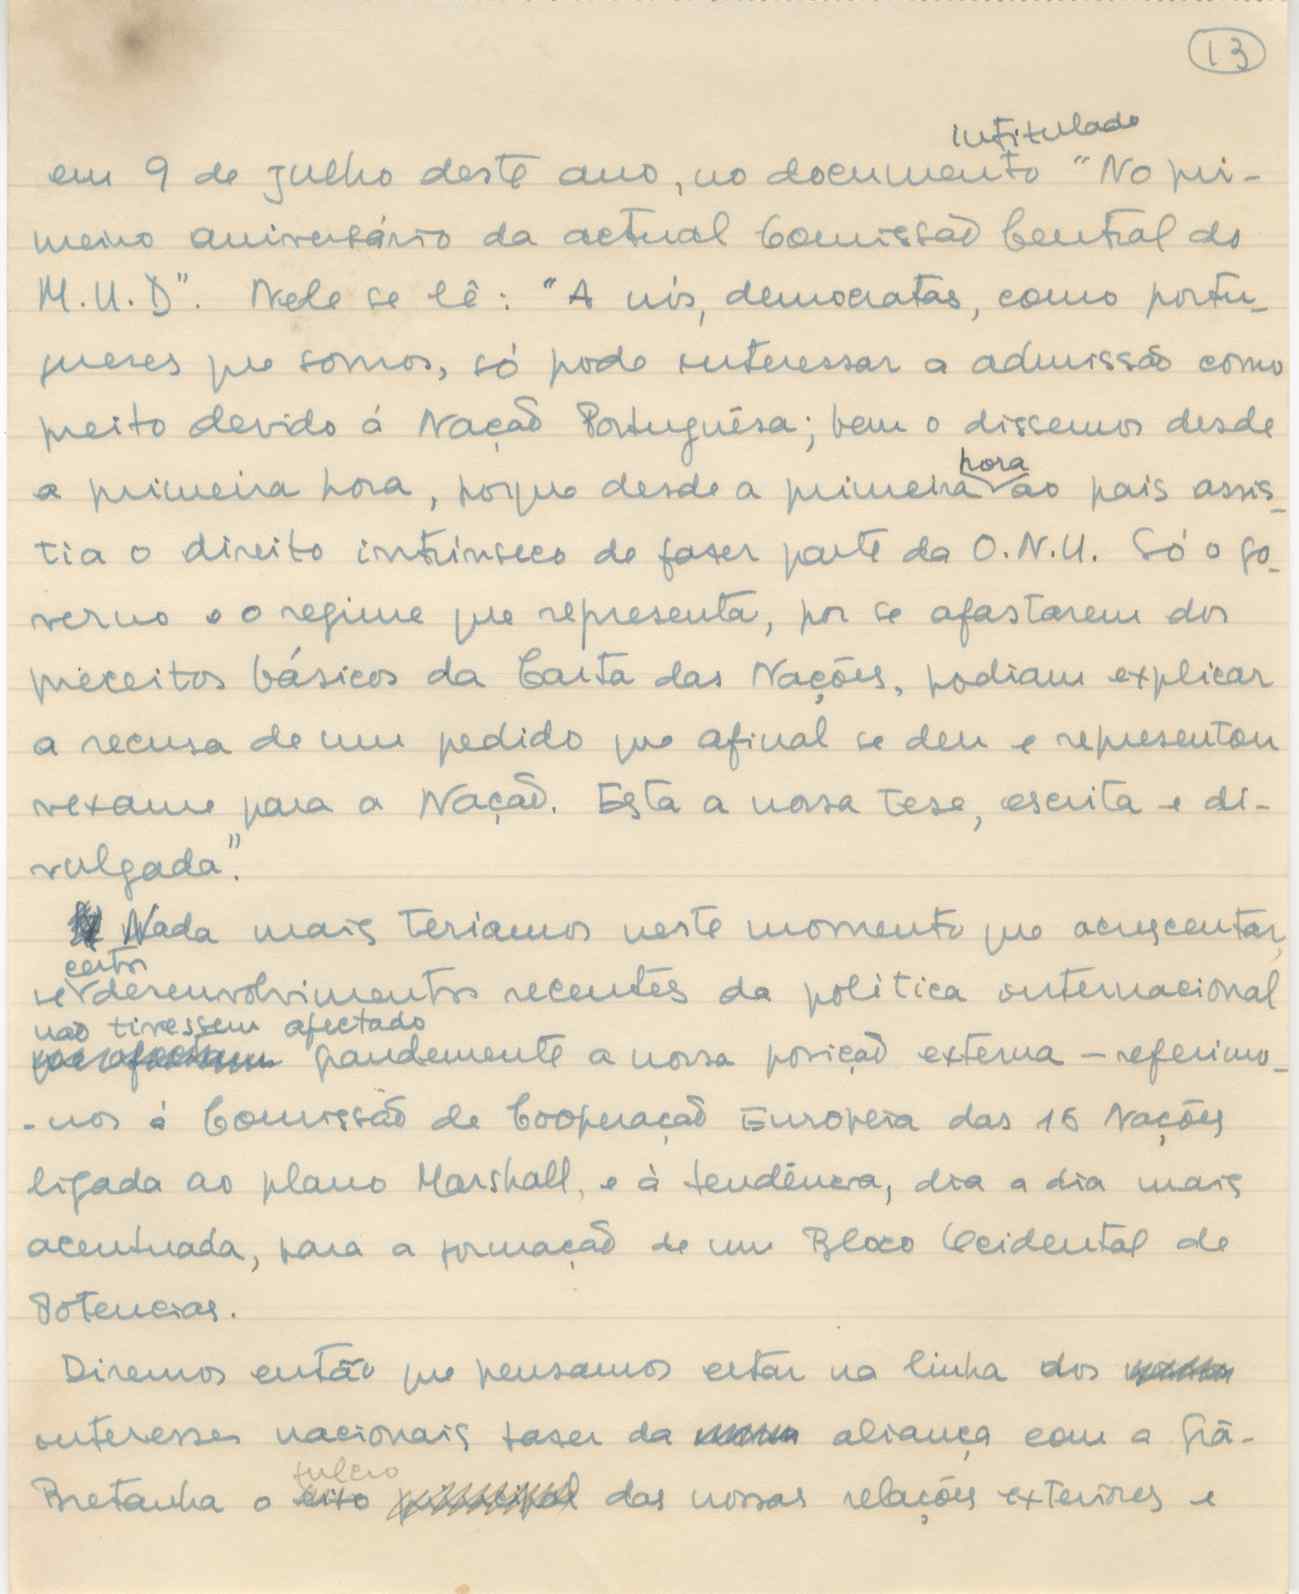 13
intitulado
em 9 de julho deste ano, no documento "No pri-
meiro aniversário da actual Comissão Central do
M.U.D". Nele se lê: "A nós, democratas, como portu-
gueses que somos, só pode interessar a admissão como
preito devido á Nação Portuguêsa; bem o dissemos desde
hora
a primeira hora, porque desde a primeira ao pais assis-
tia o direito intrínseco de fazer parte da O.N.U. Só o go-
verno e o regime que representa, por se afastarem dos
preceitos básicos da Carta das Nações, podiam explicar
a recusa de um pedido que afinal se deu e representou
vexame para a Nação. Esta a nossa tese, escrita e di-
vulgada".
Nada mais teriamos neste momento que acrescentar,
certos
se desenvolvimentos recentes da politica internacional
não tivessem afectado
que afectam grandemente a nossa posição externa - referimo-
-nos á Comissão de Cooperação Europeia das 16 Nações
ligada ao plano Marshall, e à tendência, dia a dia mais
acentuada, para a formação de um Bloco Ocidental de
Potencias.
Diremos então que pensamos estar na linha dos
interesses nacionais fazer da aliança com a Grã-
fulcro
Bretanha o eixo principal das nossas relações exteriores e